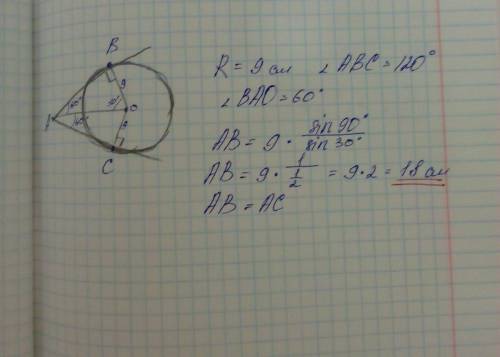 B
R = 9 см ∠ABC = 120°
∠BAO = 60°
9
30°
60°
A
O
60°
9
C
AB = 9 · sin 90° / sin 30°
AB = 9 · 1 / 1/2 = 9 · 2 = 18 см
AB = AC